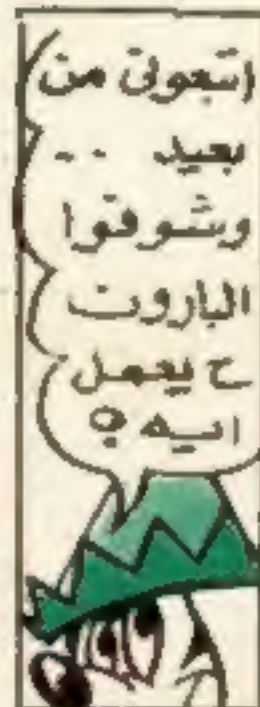 اتبعونى من
بعيد ..
وشوفوا
البارون
ح يعمل
ايه ؟